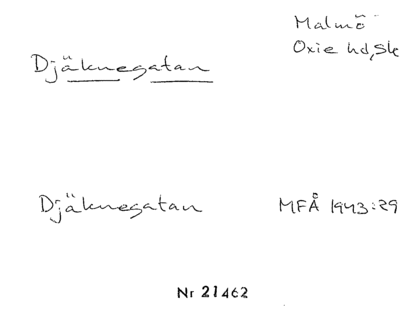 Malmö
Oxie hd, Sk
Djäknegatan
Djäknegatan MFÅ 1943:29
Nr 21462